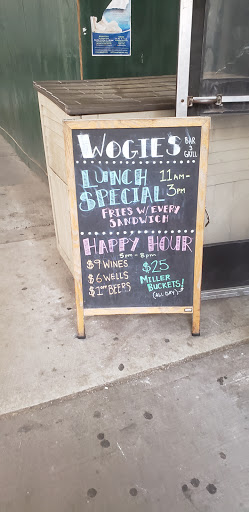 WOGIES BAR & GRILL
LUNCH 11AM-
SPECIAL 3PM
FRIES W/EVERY
SANDWICH
HAPPY HOUR
5PM-8PM
$9 WINES
$6 WELLS
$25
MILLER
BUCKETS!
(ALL DAY)